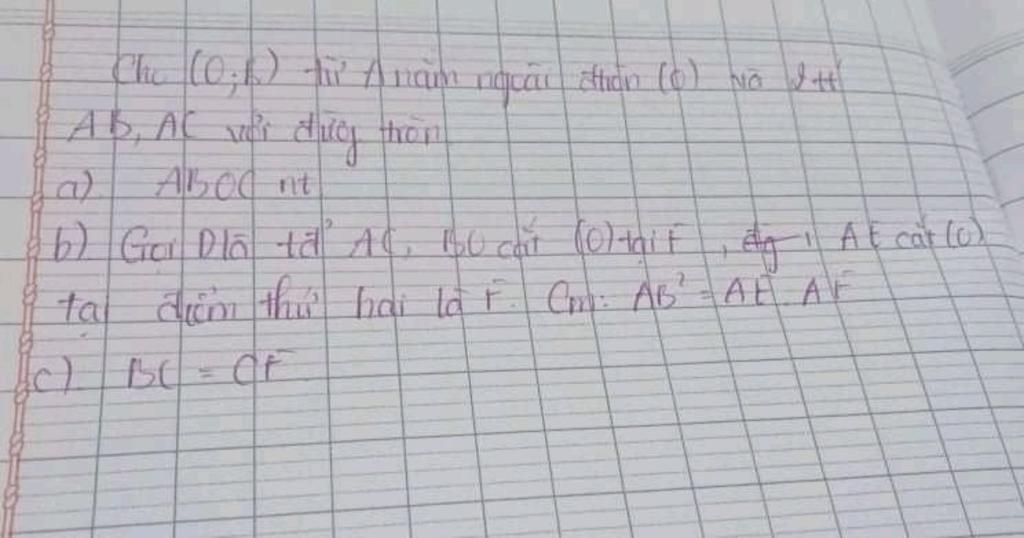 Cho (O;R) từ A nằm ngoài đtròn (O) vẽ 2 tt
AB, AC với đường tròn
a) ABOC nt
b) Gọi D là tđ AC, BD cắt (O) tại E, đg AE cắt (O)
tại điểm thứ hai là F. Cm: AB² = AE. AF
c) BC = CF